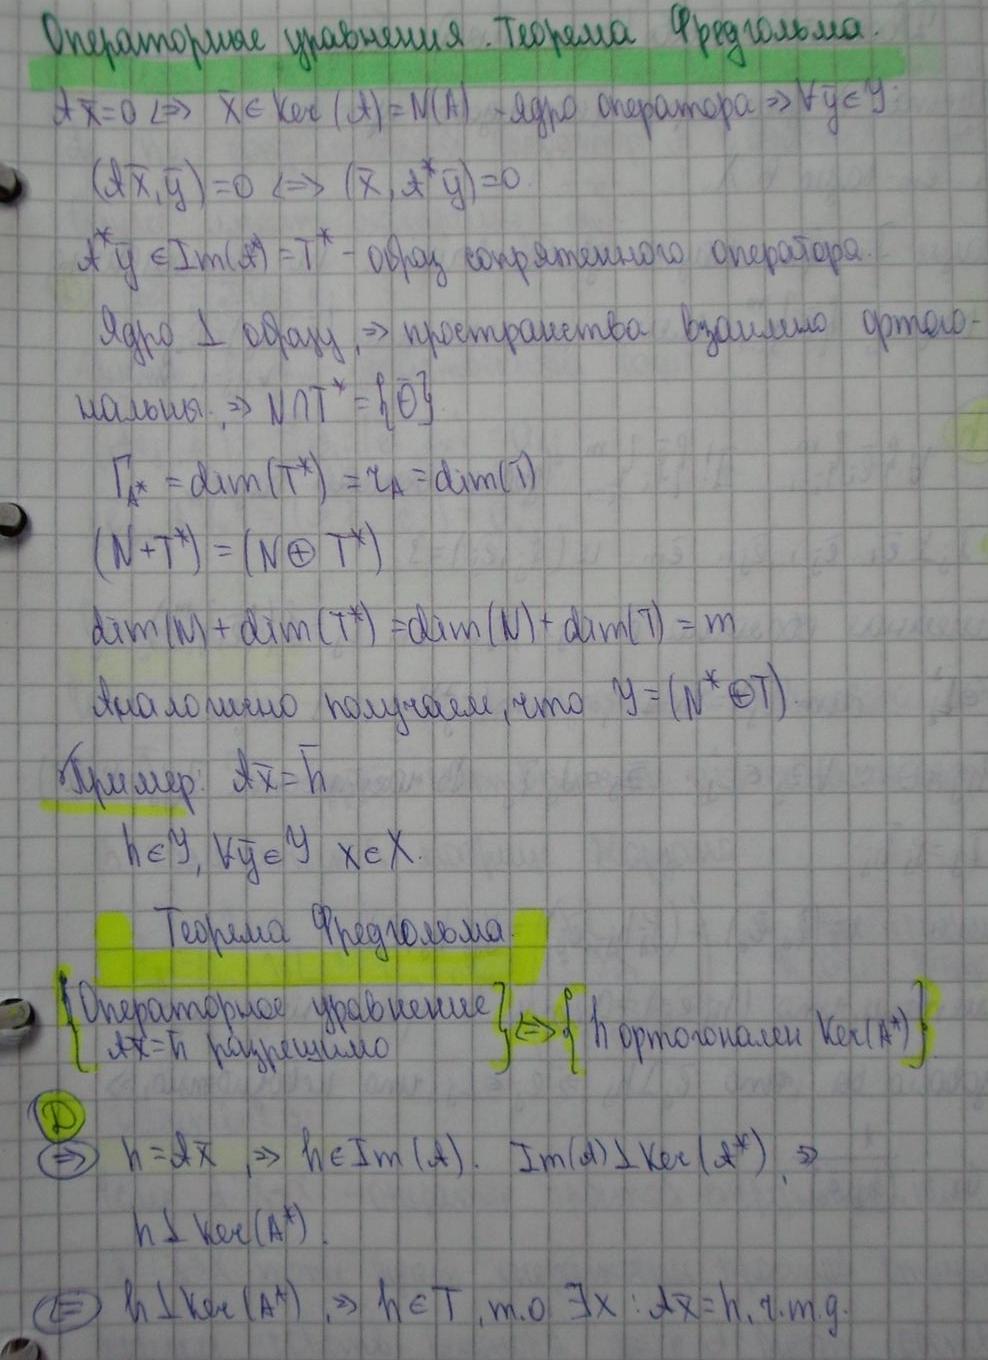 Операторные уравнения. Теорема Фредгольма.
Ax̄=0 <=> x̄∈Ker(A)=N(A) - ядро оператора => ∀ȳ∈Y:
(Ax̄,ȳ)=0 <=> (x̄,A*ȳ)=0
A*ȳ∈Im(A*)=T* - образ сопряженного оператора.
Ядро ⊥ образу, => пространства взаимно ортого-
нальны, => N∩T*={θ̄}
Γ_A* = dim(T*) = r_A = dim(T)
(N+T*) = (N⊕T*)
dim(N)+dim(T*)=dim(N)+dim(T)=m
Аналогично получаем, что Y=(N*⊕T).
Пример: Ax̄=h̄
h∈Y, ∀ȳ∈Y x∈X.
Теорема Фредгольма
{Операторное уравнение
Ax̄=h̄ разрешимо} <=> {h ортогонален Ker(A*)}
D
=> h=Ax̄, => h∈Im(A). Im(A)⊥Ker(A*), =>
h⊥Ker(A*).
<= h⊥Ker(A*), => h∈T, т.о. ∃x: Ax̄=h, ч.т.д.